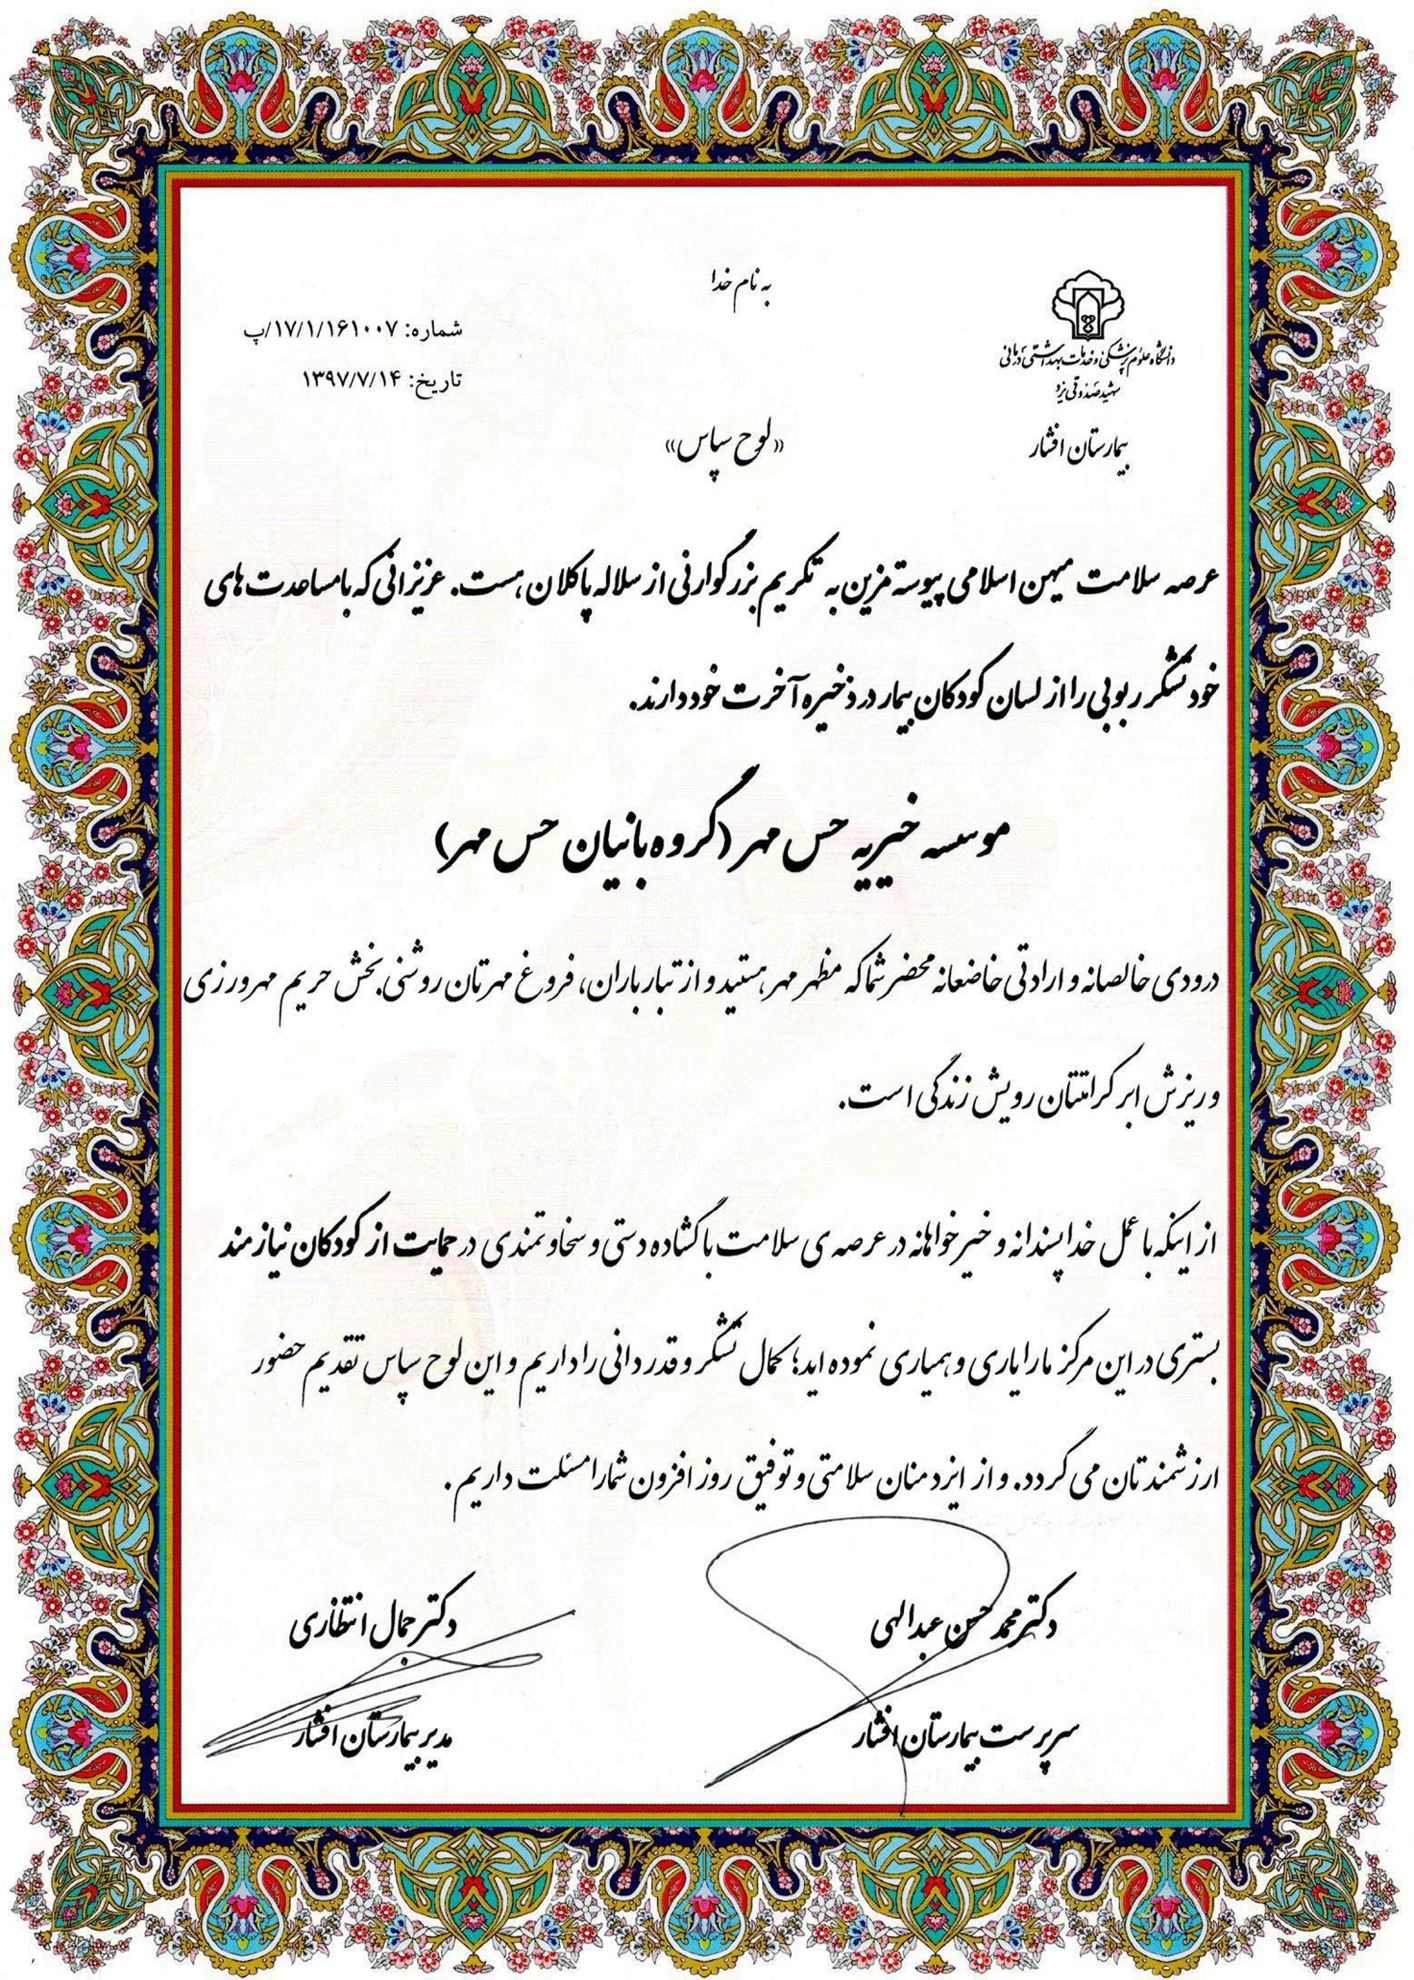 به نام خدا
دانشگاه علوم پزشکی و خدمات بهداشتی درمانی
شهید صدوقی یزد
بیمارستان افشار
شماره: ۱۷/۱/۱۶۱۰۰۷/پ
تاریخ: ۱۳۹۷/۷/۱۴
«لوح سپاس»
عرصه سلامت میهن اسلامی پیوسته مزین به تکریم بزرگوارنی از سلاله پاکلان هست. عزیزانی که با مساعدت های
خود تشکر ربوبی را از لسان کودکان بیمار در ذخیره آخرت خود دارند.
موسسه خیریه حس مهر (گروه بانیان حس مهر)
درودی خالصانه و ارادتی خاضعانه محضر شما که مظهر مهر هستید و از تبار باران، فروغ مهرتان روشنی بخش حریم مهرورزی
و ریزش ابر کرامتتان رویش زندگی است.
از اینکه با عمل خداپسندانه و خیرخواهانه در عرصه ی سلامت با گشاده دستی و سخاوتمندی در حمایت از کودکان نیازمند
بستری در این مرکز ما را یاری و همیاری نموده اید؛ کمال تشکر و قدردانی را داریم و این لوح سپاس تقدیم حضور
ارزشمندتان می گردد. و از ایزد منان سلامتی و توفیق روز افزون شما را مسئلت داریم.
دکتر محمد حسن عبدالهی
سرپرست بیمارستان افشار
دکتر جمال انتظاری
مدیر بیمارستان افشار